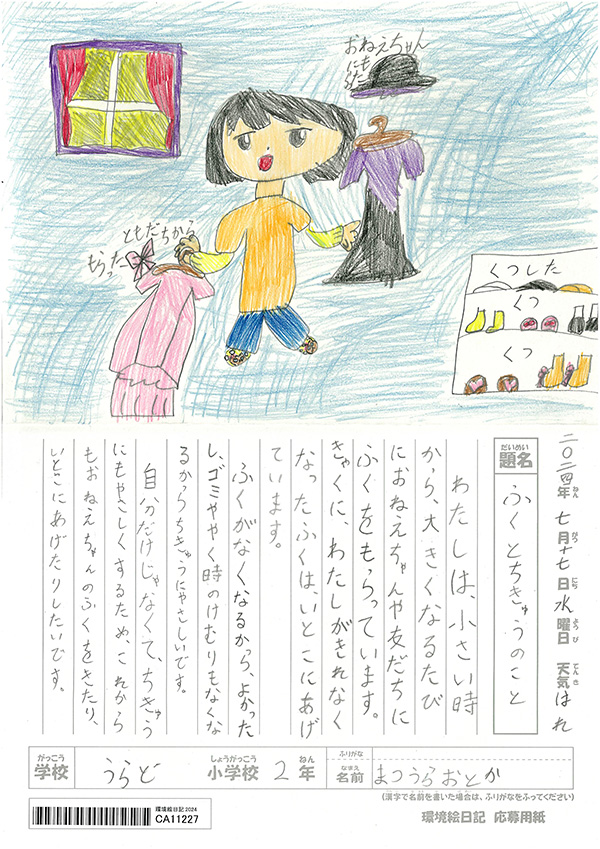 おねえちゃん
にも
らった
ともだちから
もらった
くつした
くつ
くつ
二〇二四年 七月十七日 水曜日 天気 はれ
題名 ふくとちきゅうのこと
わたしは、小さい時
から、大きくなるたび
におねえちゃんや友だちに
ふくをもらっています。
ぎゃくに、わたしがきれなく
なったふくは、いとこにあげ
ています。
ふくがなくなるから、よかった
し、ゴミややく時のけむりもなくな
るからちきゅうにやさしいです。
自分だけじゃなくて、ちきゅう
にもやさしくするため、これから
もおねえちゃんのふくをきたり、
いとこにあげたりしたいです。
学校 うらど 小学校 2年 ふりがな 名前 まつうらおとか
(漢字で名前を書いた場合は、ふりがなをふってください)
環境絵日記 2024
CA11227
環境絵日記 応募用紙